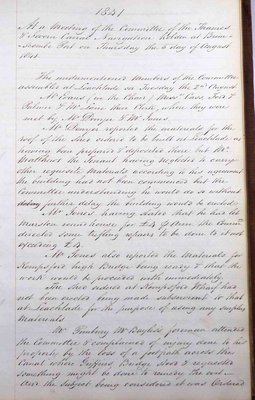 1841
At a Meeting of the Committee of the Thames
& Severn Canal Navigation holden at Brims-
combe Port on Thursday the 5 day of August
1841.
The undermentioned Members of the Committee
assembled at Lechlade on Tuesday the 3rd August
Mr in the Chair
Palmer & Mr Lane their Clerk, when they were
met by Mr Denyer & Mr Jones.
Mr Denyer reported the materials for the
roof of the Shed ordered to be built at Lechlade as
having been prepared & deposited there but Mr
Matthews the Tenant having neglected to carry
other requisite Materials according to his agreement
the building had not been commenced but the
Committee understanding he would do so without
further delay the building would be
Mr Jones having stated that he has let
Marston round house for £4 when the Comm
directed some trifling repairs to be done to it not
exceeding £4.
Mr Jones also reported the Materials for
Kempsford high Bridge being ready & that the
work would be proceeded with immediately
The Shed ordered at Kempsford Wharf has
not been erected being made subservient to that
at Lechlade for the purpose of using any surplus
Materials
Mr Tombury Mr foreman attended
the Committee & complained of injury done to his
property by the loss of a footpath across the
Canal where Bridge stood & requested
something might be done to remedy the evil
And the Subject being considered it was Ordered